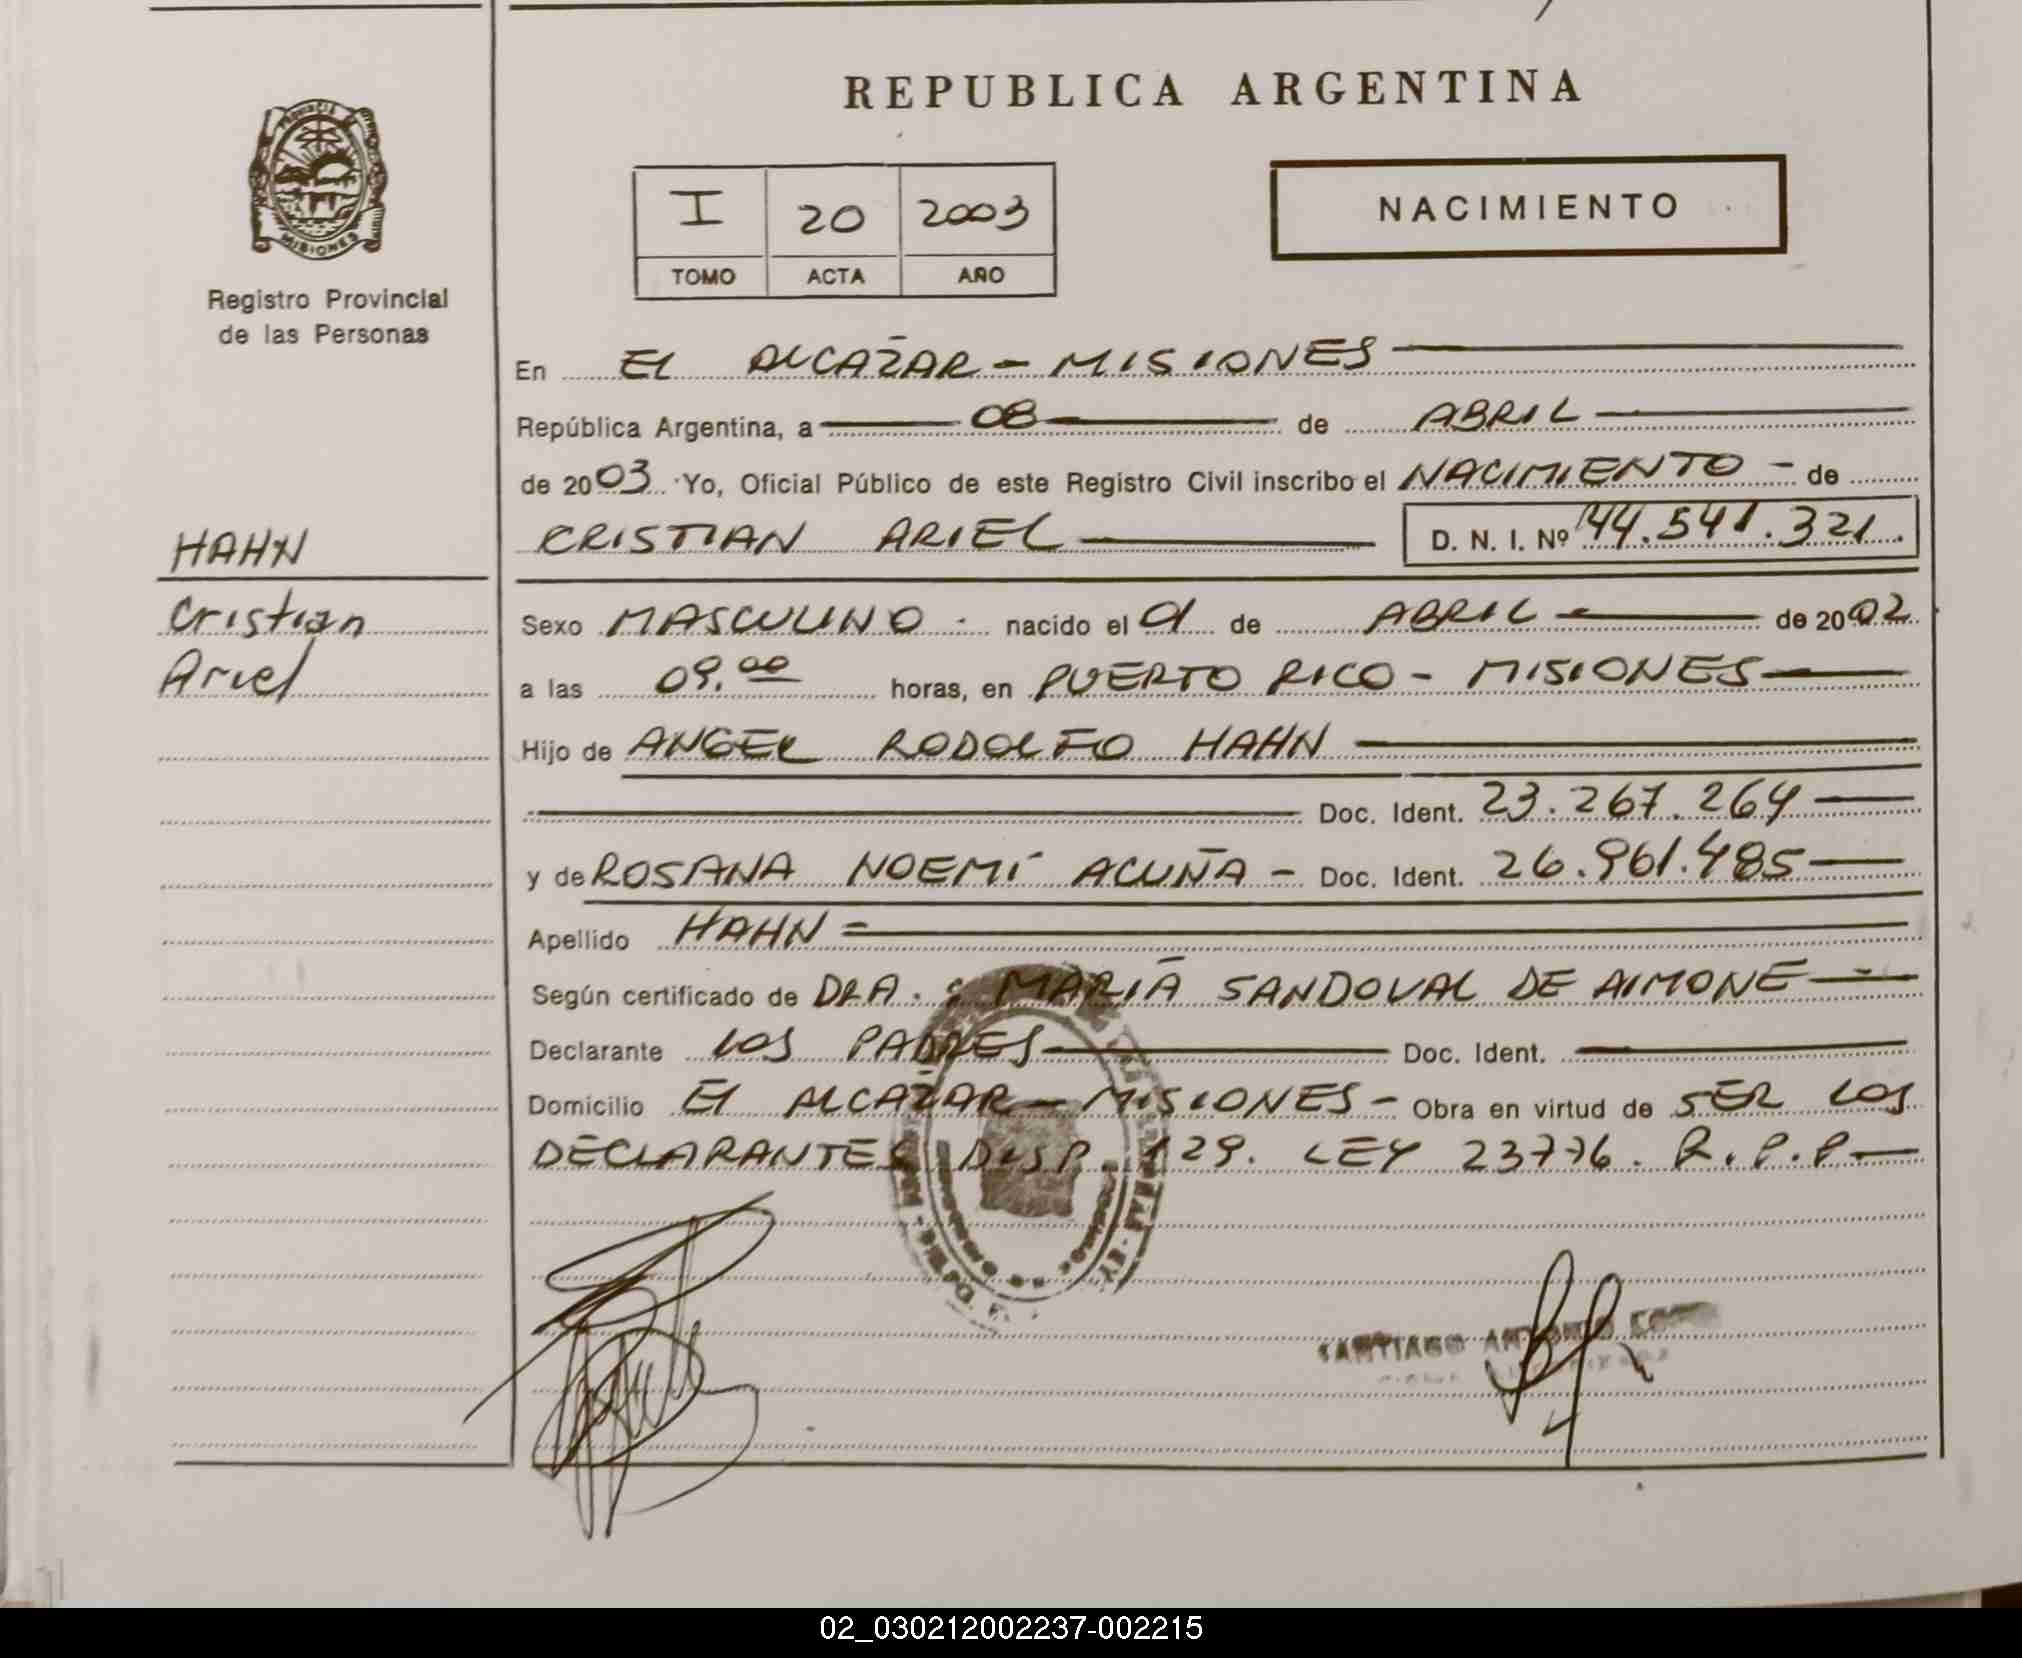 REPUBLICA ARGENTINA
MISIONES
Registro Provincial
de las Personas
I 20 2003
TOMO ACTA AÑO
NACIMIENTO
En EL ALCAZAR - MISIONES
República Argentina, a 08 de ABRIL
de 2003 Yo, Oficial Público de este Registro Civil inscribo el NACIMIENTO - de
HAHN
Cristian
Ariel
CRISTIAN ARIEL D. N. I. Nº 44.541.321.
Sexo MASCULINO. nacido el 01 de ABRIL de 2002
a las 09.00 horas, en PUERTO RICO - MISIONES
Hijo de ANGEL RODOLFO HAHN
Doc. Ident. 23.267.264
y de ROSANA NOEMÍ ACUÑA - Doc. Ident. 26.961.485
Apellido HAHN
Según certificado de DRA. : MARIA SANDOVAL DE AIMONE
Declarante LOS PADRES Doc. Ident.
Domicilio EL ALCAZAR - MISIONES - Obra en virtud de SER LOS
DECLARANTES DISP. 129. LEY 23776. R.P.P.
SANTIAGO ANTONIO
02_030212002237-002215